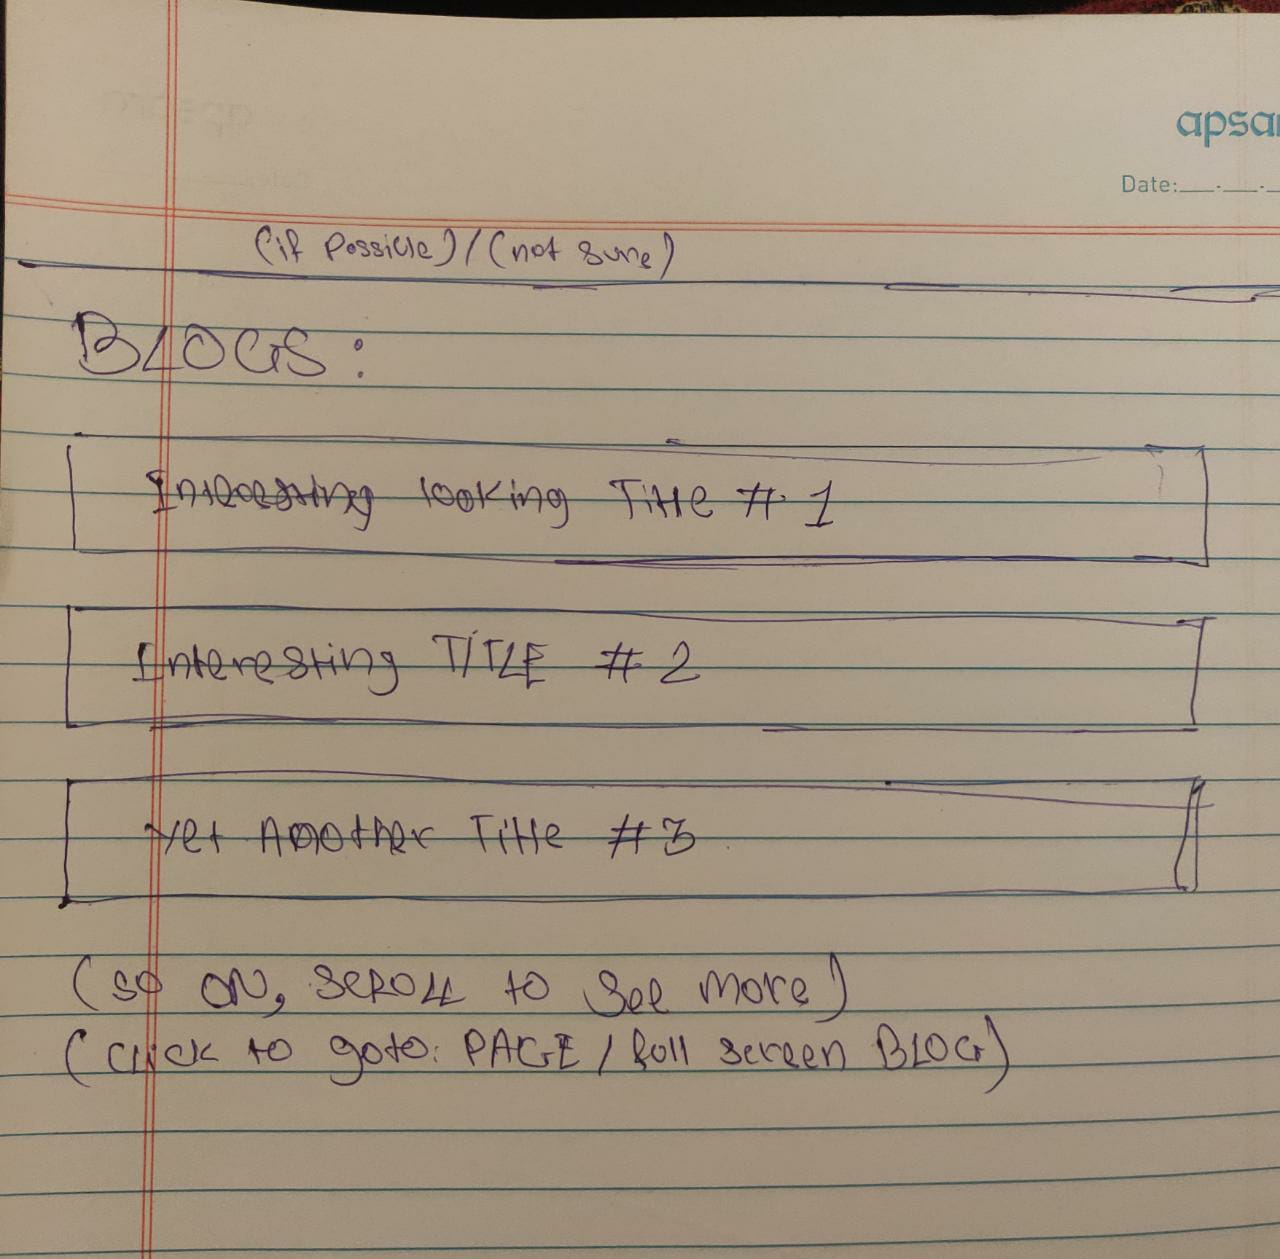 apsar
Date:
(if possible)/(not sure)
BLOGS:
Interesting looking Title #1
Interesting TITLE #2
Yet Another Title #3
(so ON, SCROLL to See more)
(Click to goto: PAGE / full screen BLOG)